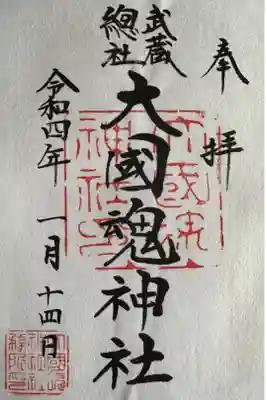 奉拝
武蔵
總社
大國魂神社
令和四年 一月 十四日